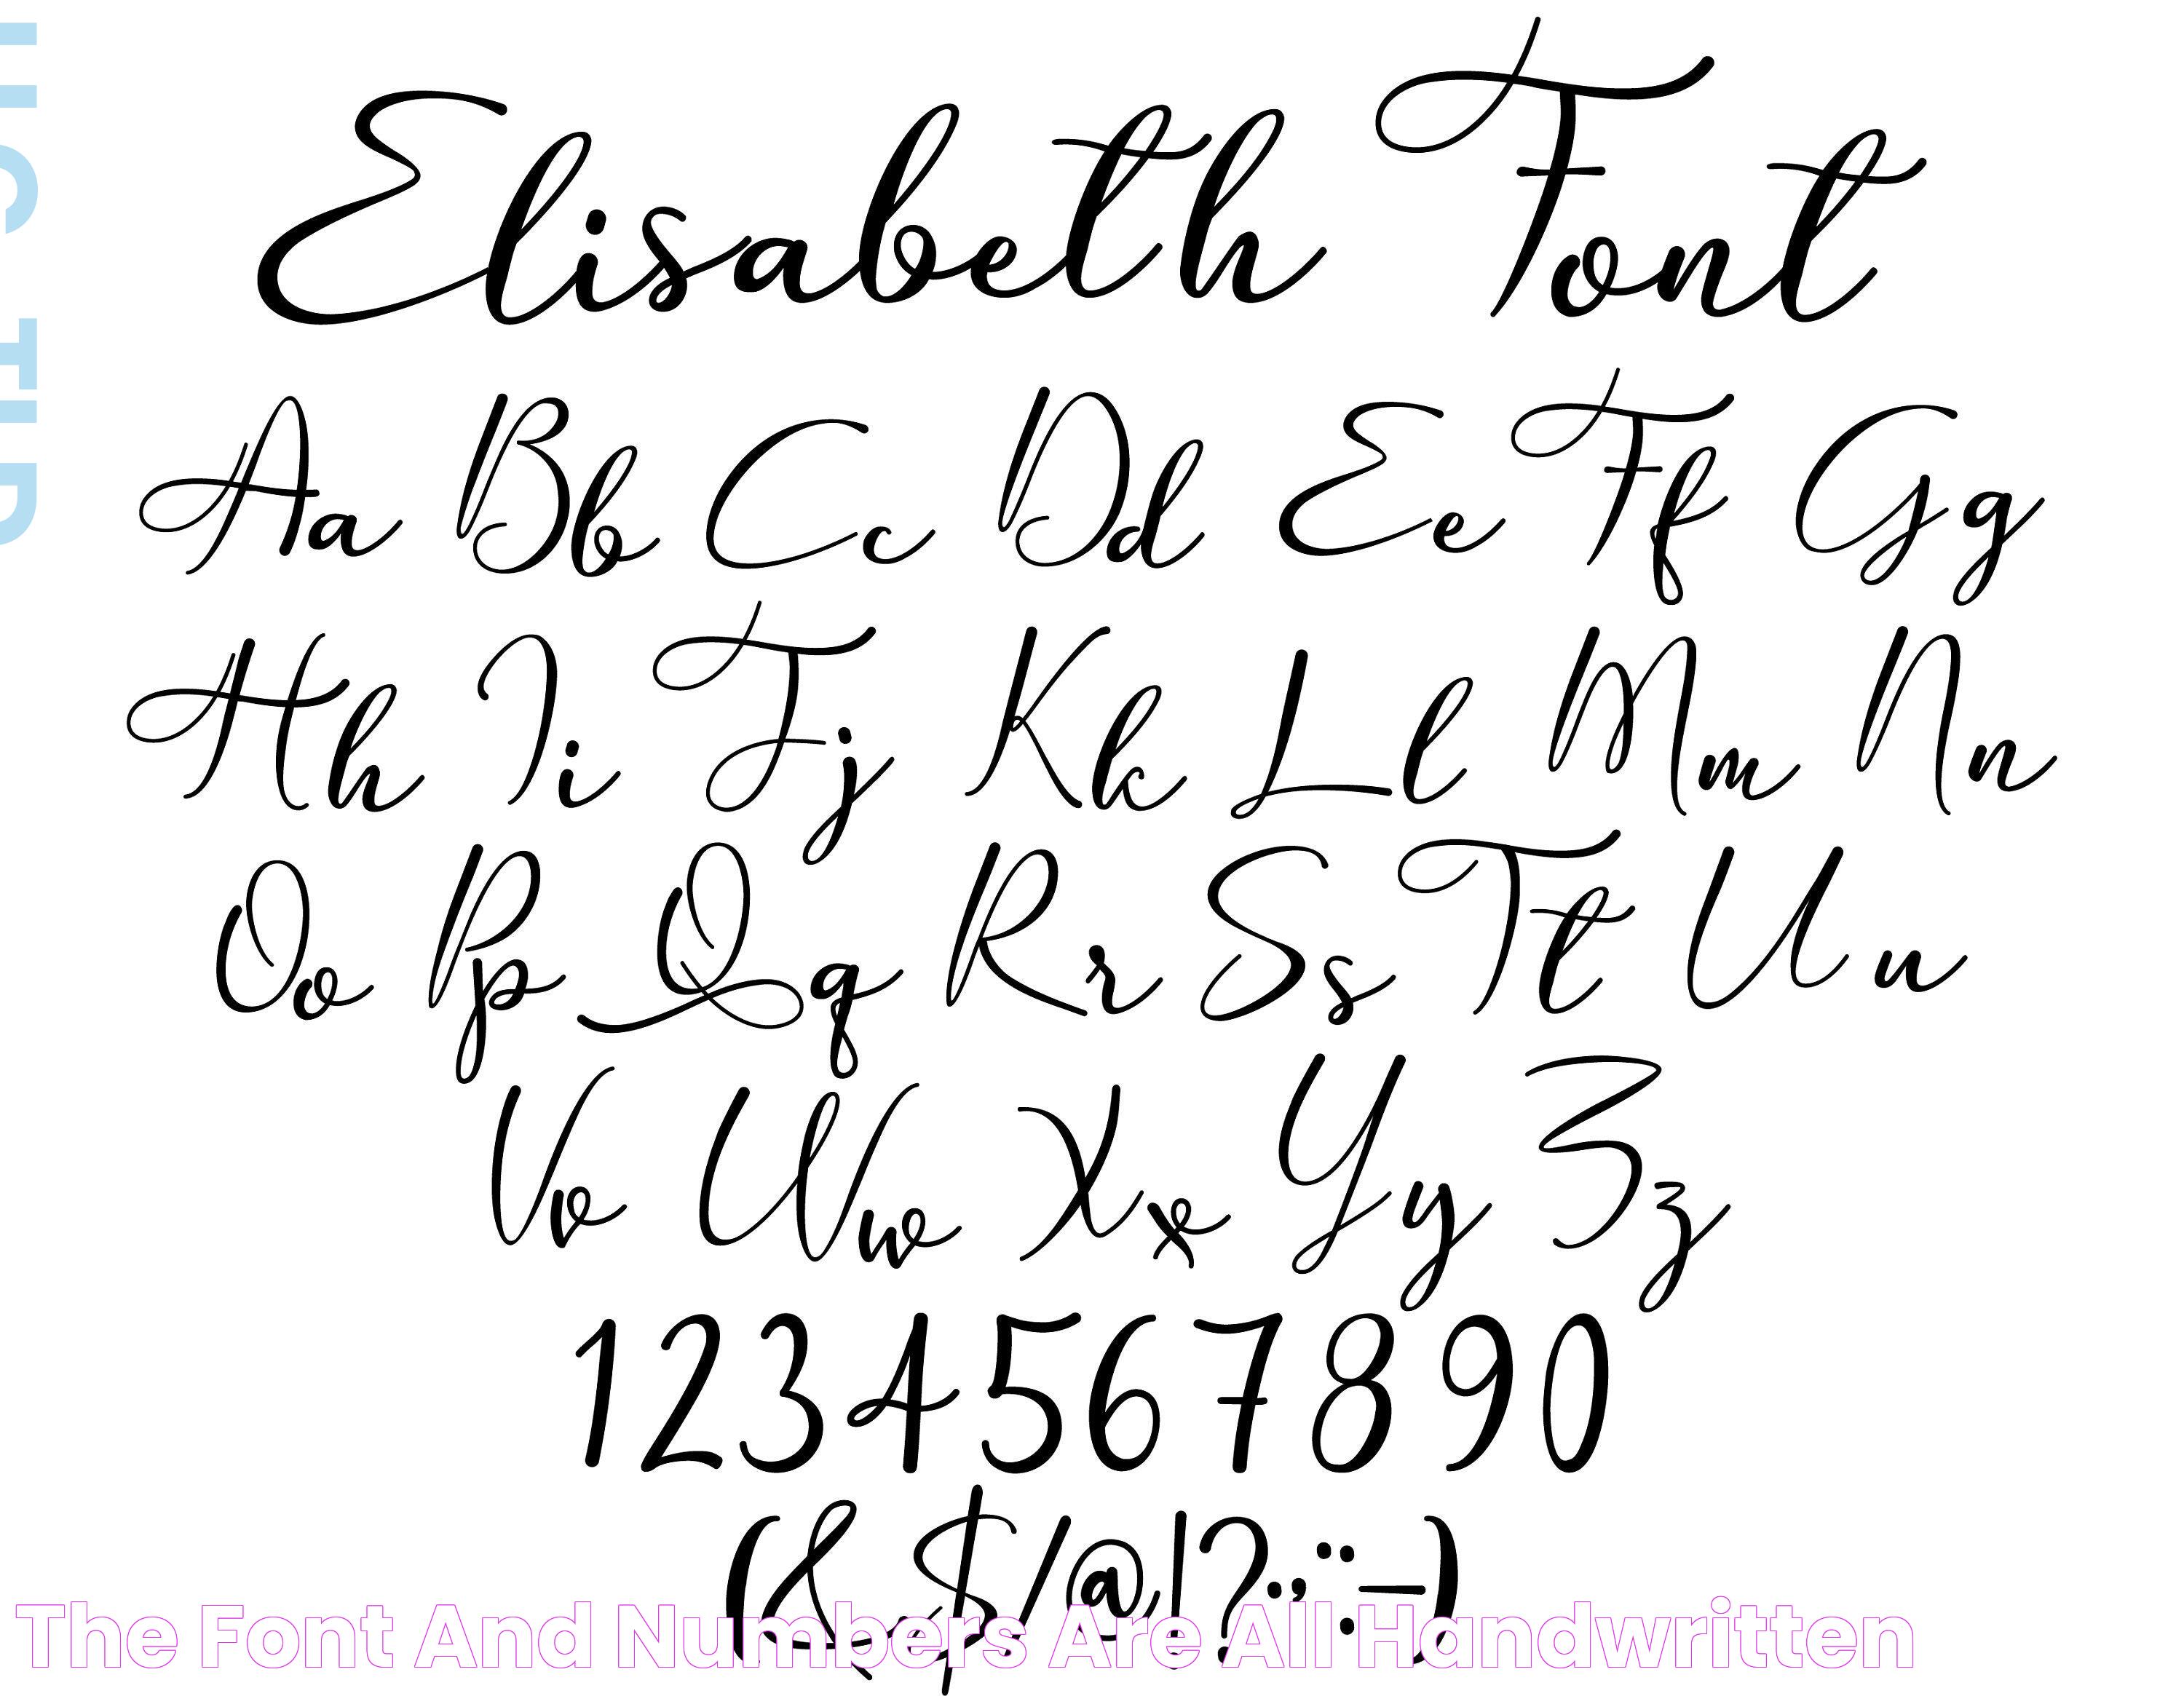 Elisabeth Font
Aa Bb Cc Dd Ee Ff Gg
Hh Ii Jj Kk Ll Mm Nn
Oo Pp Qq Rr Ss Tt Uu
Vv Ww Xx Yy Zz
1234567890
(& $/@!?:;"-)
The Font And Numbers Are All Handwritten